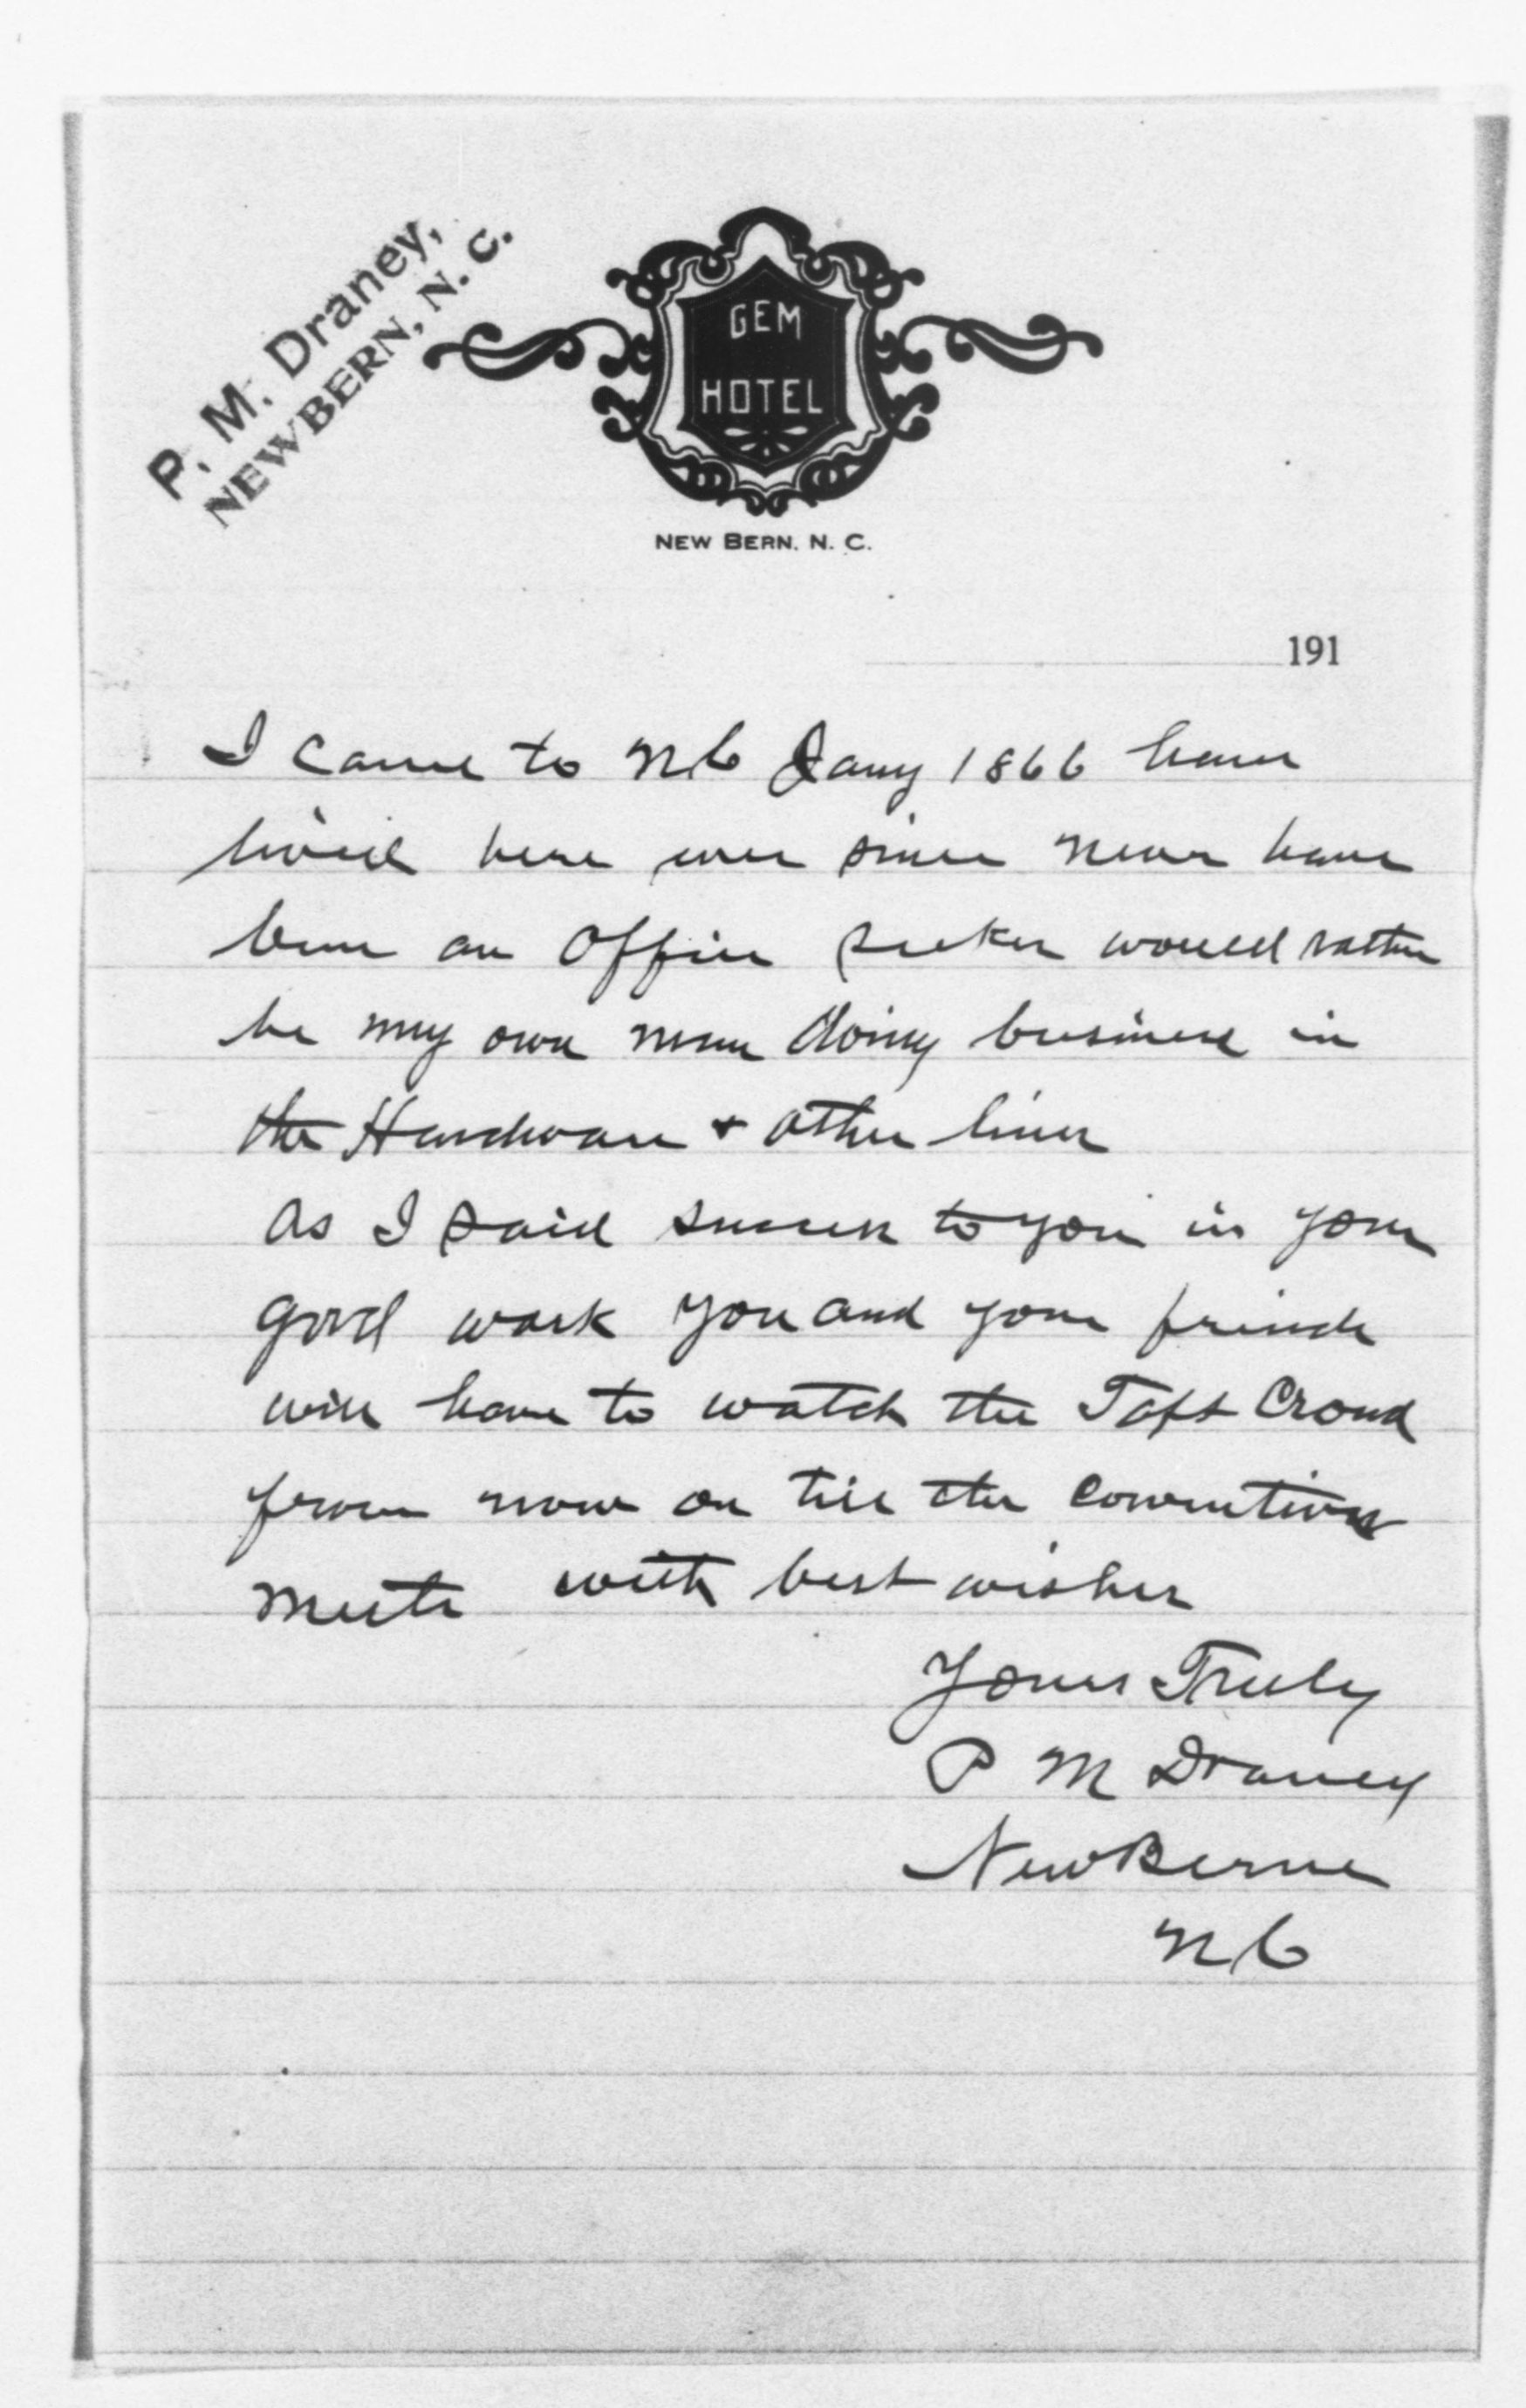 P. M. Draney,
NEWBERN, N. C.
GEM
HOTEL
NEW BERN. N. C.
191
I came to NC Jany 1866 have
lived here ever since never have
been an Office seeker would rather
be my own man doing business in
the Hardware & other lines
As I said success to you in your
good work you and your friends
will have to watch the Taft Crowd
from now on till the convention
meets with best wishes
Yours Truly
P M Draney
New Berne
NC